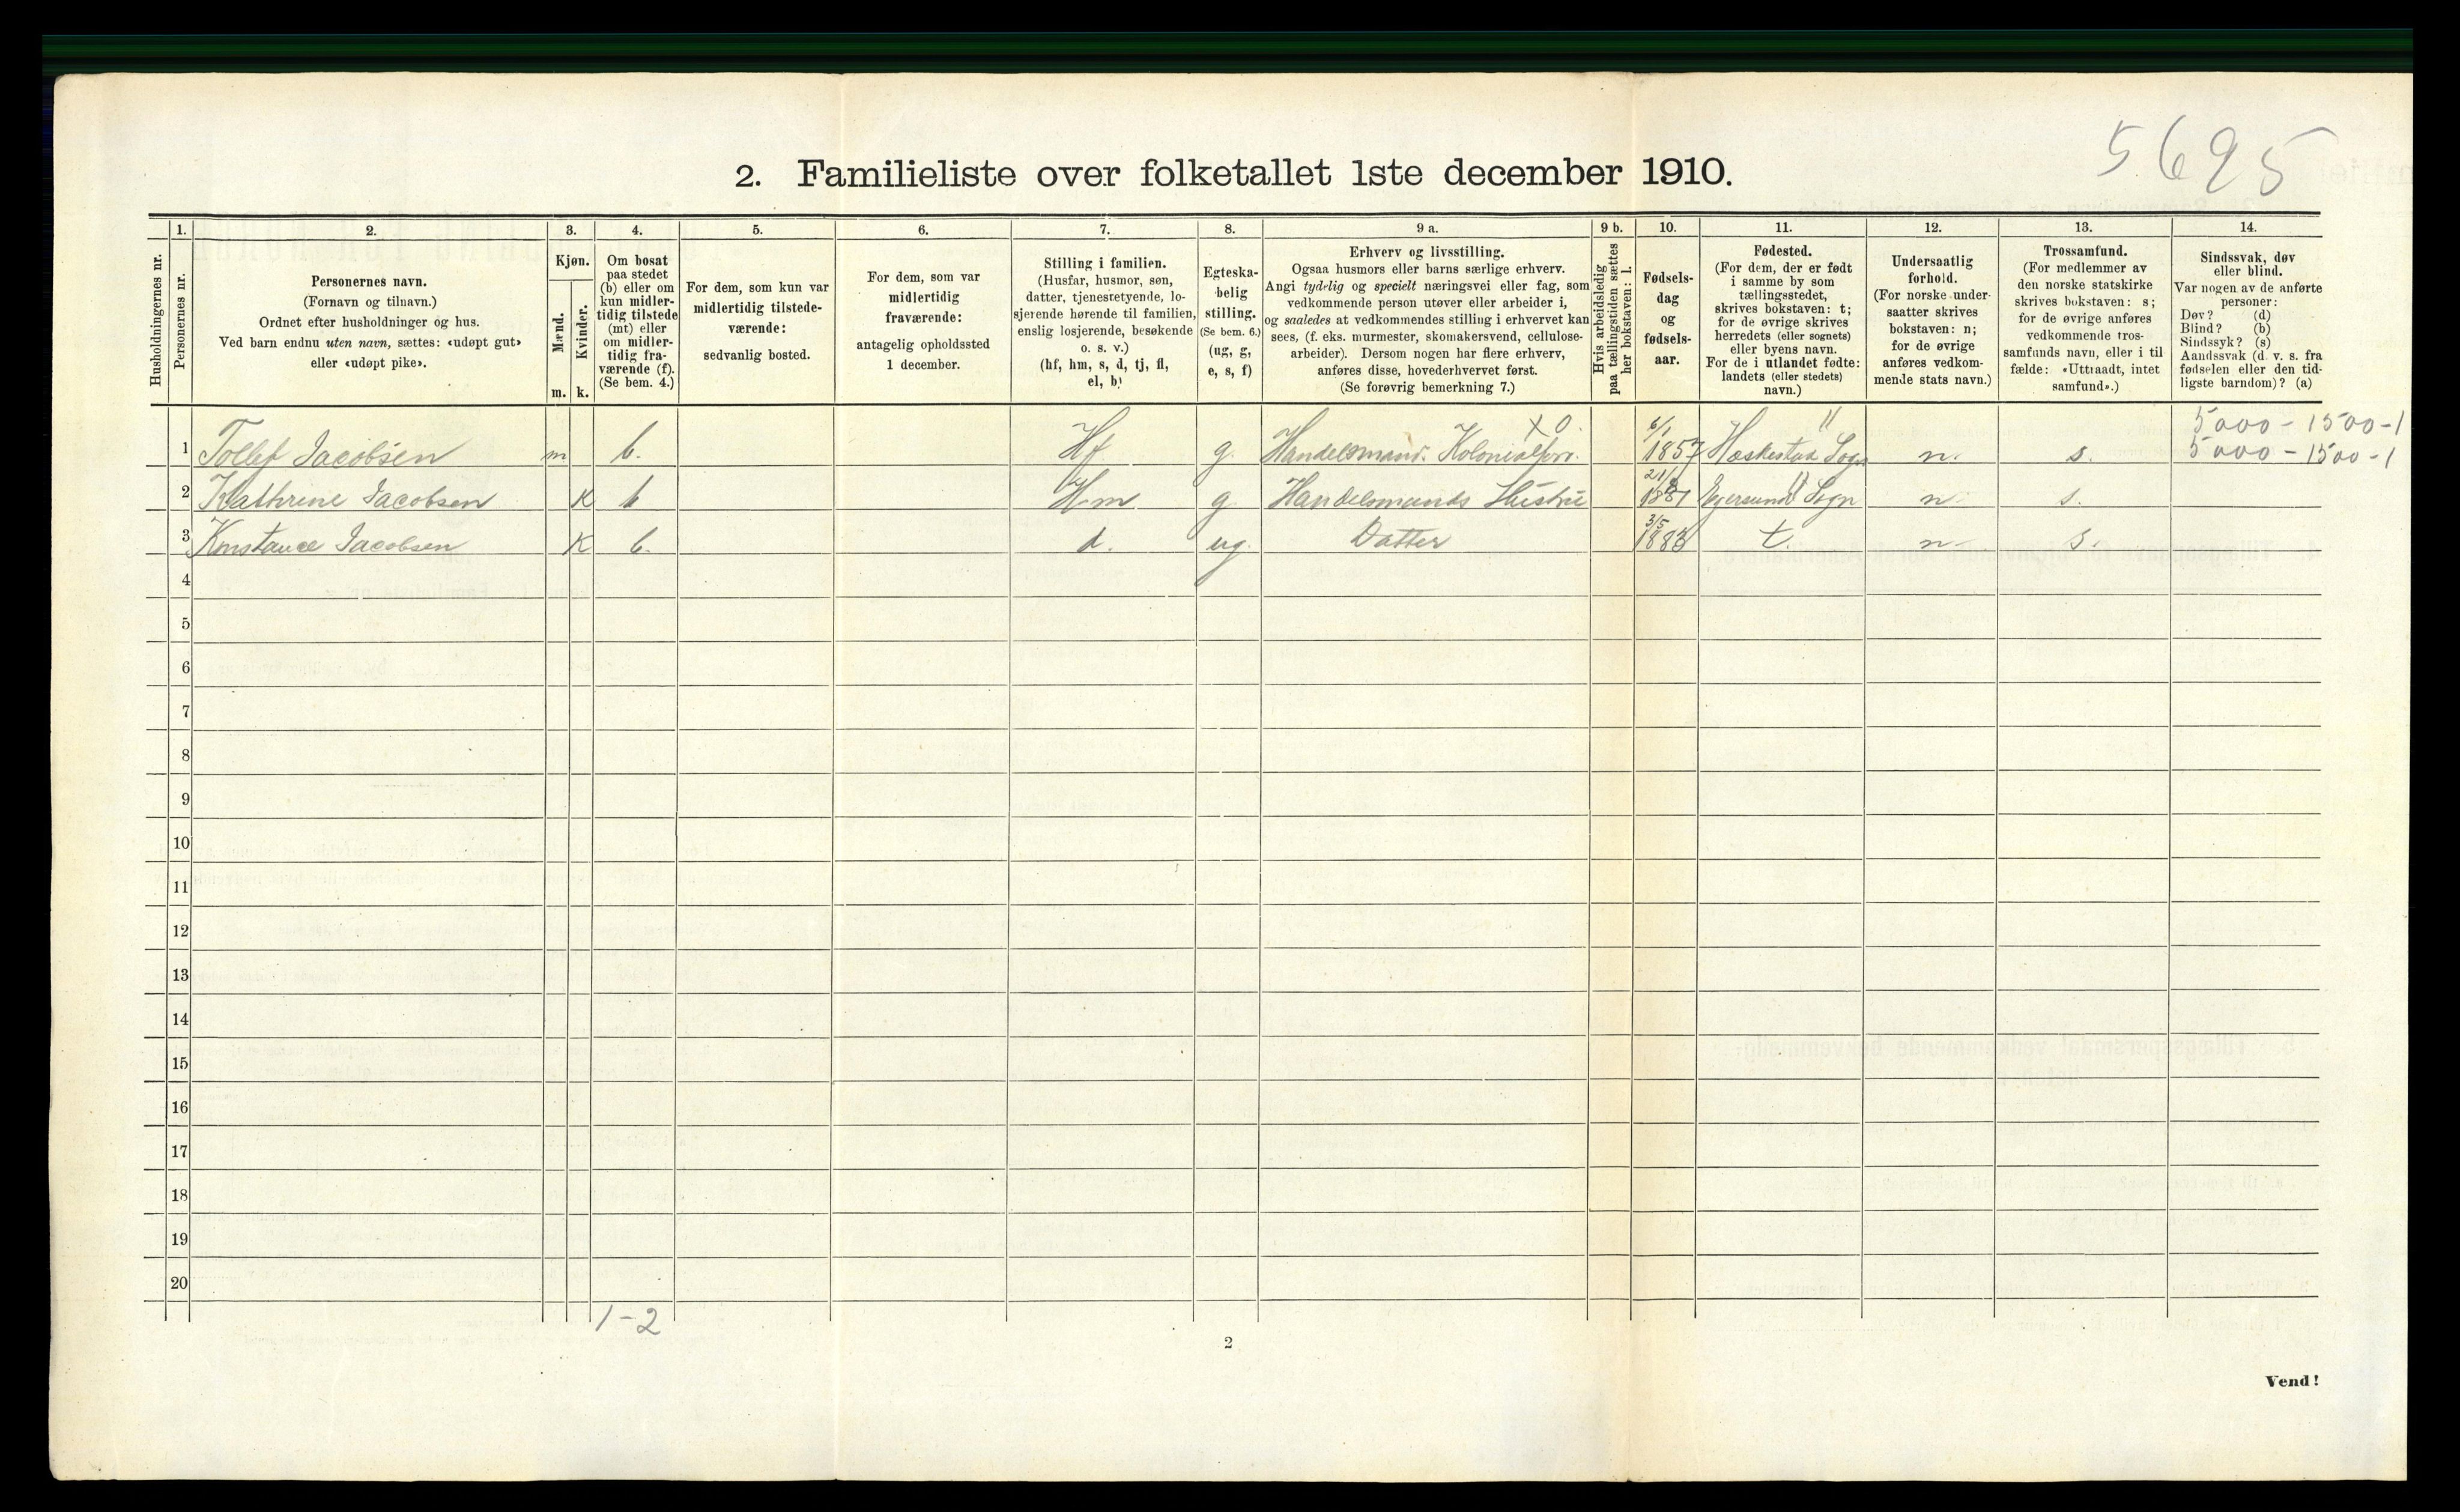 5695
2. Familieliste over folketallet 1ste december 1910.
Husholdningernes nr.
1.
Personernes nr.
2.
Personernes navn.
(Fornavn og tilnavn.)
Ordnet efter husholdninger og hus.
Ved barn endnu uten navn, sættes: «udøpt gut»
eller «udøpt pike».
3.
Kjøn.
Mænd.
Kvinder.
m. k.
4.
Om bosat
paa stedet
(b) eller om
kun midler-
tidig tilstede
(mt) eller
om midler-
tidig fra-
værende (f).
(Se bem. 4.)
5.
For dem, som kun var
midlertidig tilstede-
værende:
sedvanlig bosted.
6.
For dem, som var
midlertidig
fraværende:
antagelig opholdssted
1 december.
7.
Stilling i familien.
(Husfar, husmor, søn,
datter, tjenestetyende, lo-
sjerende hørende til familien,
enslig losjerende, besøkende
o. s. v.)
(hf, hm, s, d, tj, fl,
el, b)
8.
Egteska-
belig
stilling.
(Se bem. 6.)
(ug, g,
e, s, f)
9 a.
Erhverv og livsstilling.
Ogsaa husmors eller barns særlige erhverv.
Angi tydelig og specielt næringsvei eller fag, som
vedkommende person utøver eller arbeider i,
og saaledes at vedkommendes stilling i erhvervet kan
sees, (f. eks. murmester, skomakersvend, cellulose-
arbeider). Dersom nogen har flere erhverv,
anføres disse, hovederhvervet først.
(Se forøvrig bemerkning 7.)
9 b.
Hvis arbeidsledig
paa tællingstiden sættes
her bokstaven: l.
10.
Fødsels-
dag
og
fødsels-
aar.
11.
Fødested.
(For dem, der er født
i samme by som
tællingsstedet,
skrives bokstaven: t;
for de øvrige skrives
herredets (eller sognets)
eller byens navn.
For de i utlandet fødte:
landets (eller stedets)
navn.)
12.
Undersaatlig
forhold.
(For norske under-
saatter skrives
bokstaven: n;
for de øvrige
anføres vedkom-
mende stats navn.)
13.
Trossamfund.
(For medlemmer av
den norske statskirke
skrives bokstaven: s;
for de øvrige anføres
vedkommende tros-
samfunds navn, eller i til
fælde: «Uttraadt, intet
samfund».)
14.
Sindssvak, døv
eller blind.
Var nogen av de anførte
personer:
Døv? (d)
Blind? (b)
Sindssyk? (s)
Aandssvak (d. v. s. fra
fødselen eller den tid-
ligste barndom)? (a)
X0. 6/1 " 5000 - 1500 - 1
1 Tollef Jacobsen m b. Hf g. Handelsmand. Kolonialforr. 1857 Heskestad Sogn n. s. 5000 - 1500 - 1
2 Kathrine Jacobsen K b Hm g. Handelsmands Hustru Egersund Sogn n. s.
3/5
3 Konstance Jacobsen K b. d. ug. Datter 1883 t. n. s.
4
5
6
7
8
9
10
11
12
13
14
15
16
17
18
19
20
1 - 2
2
Vend!